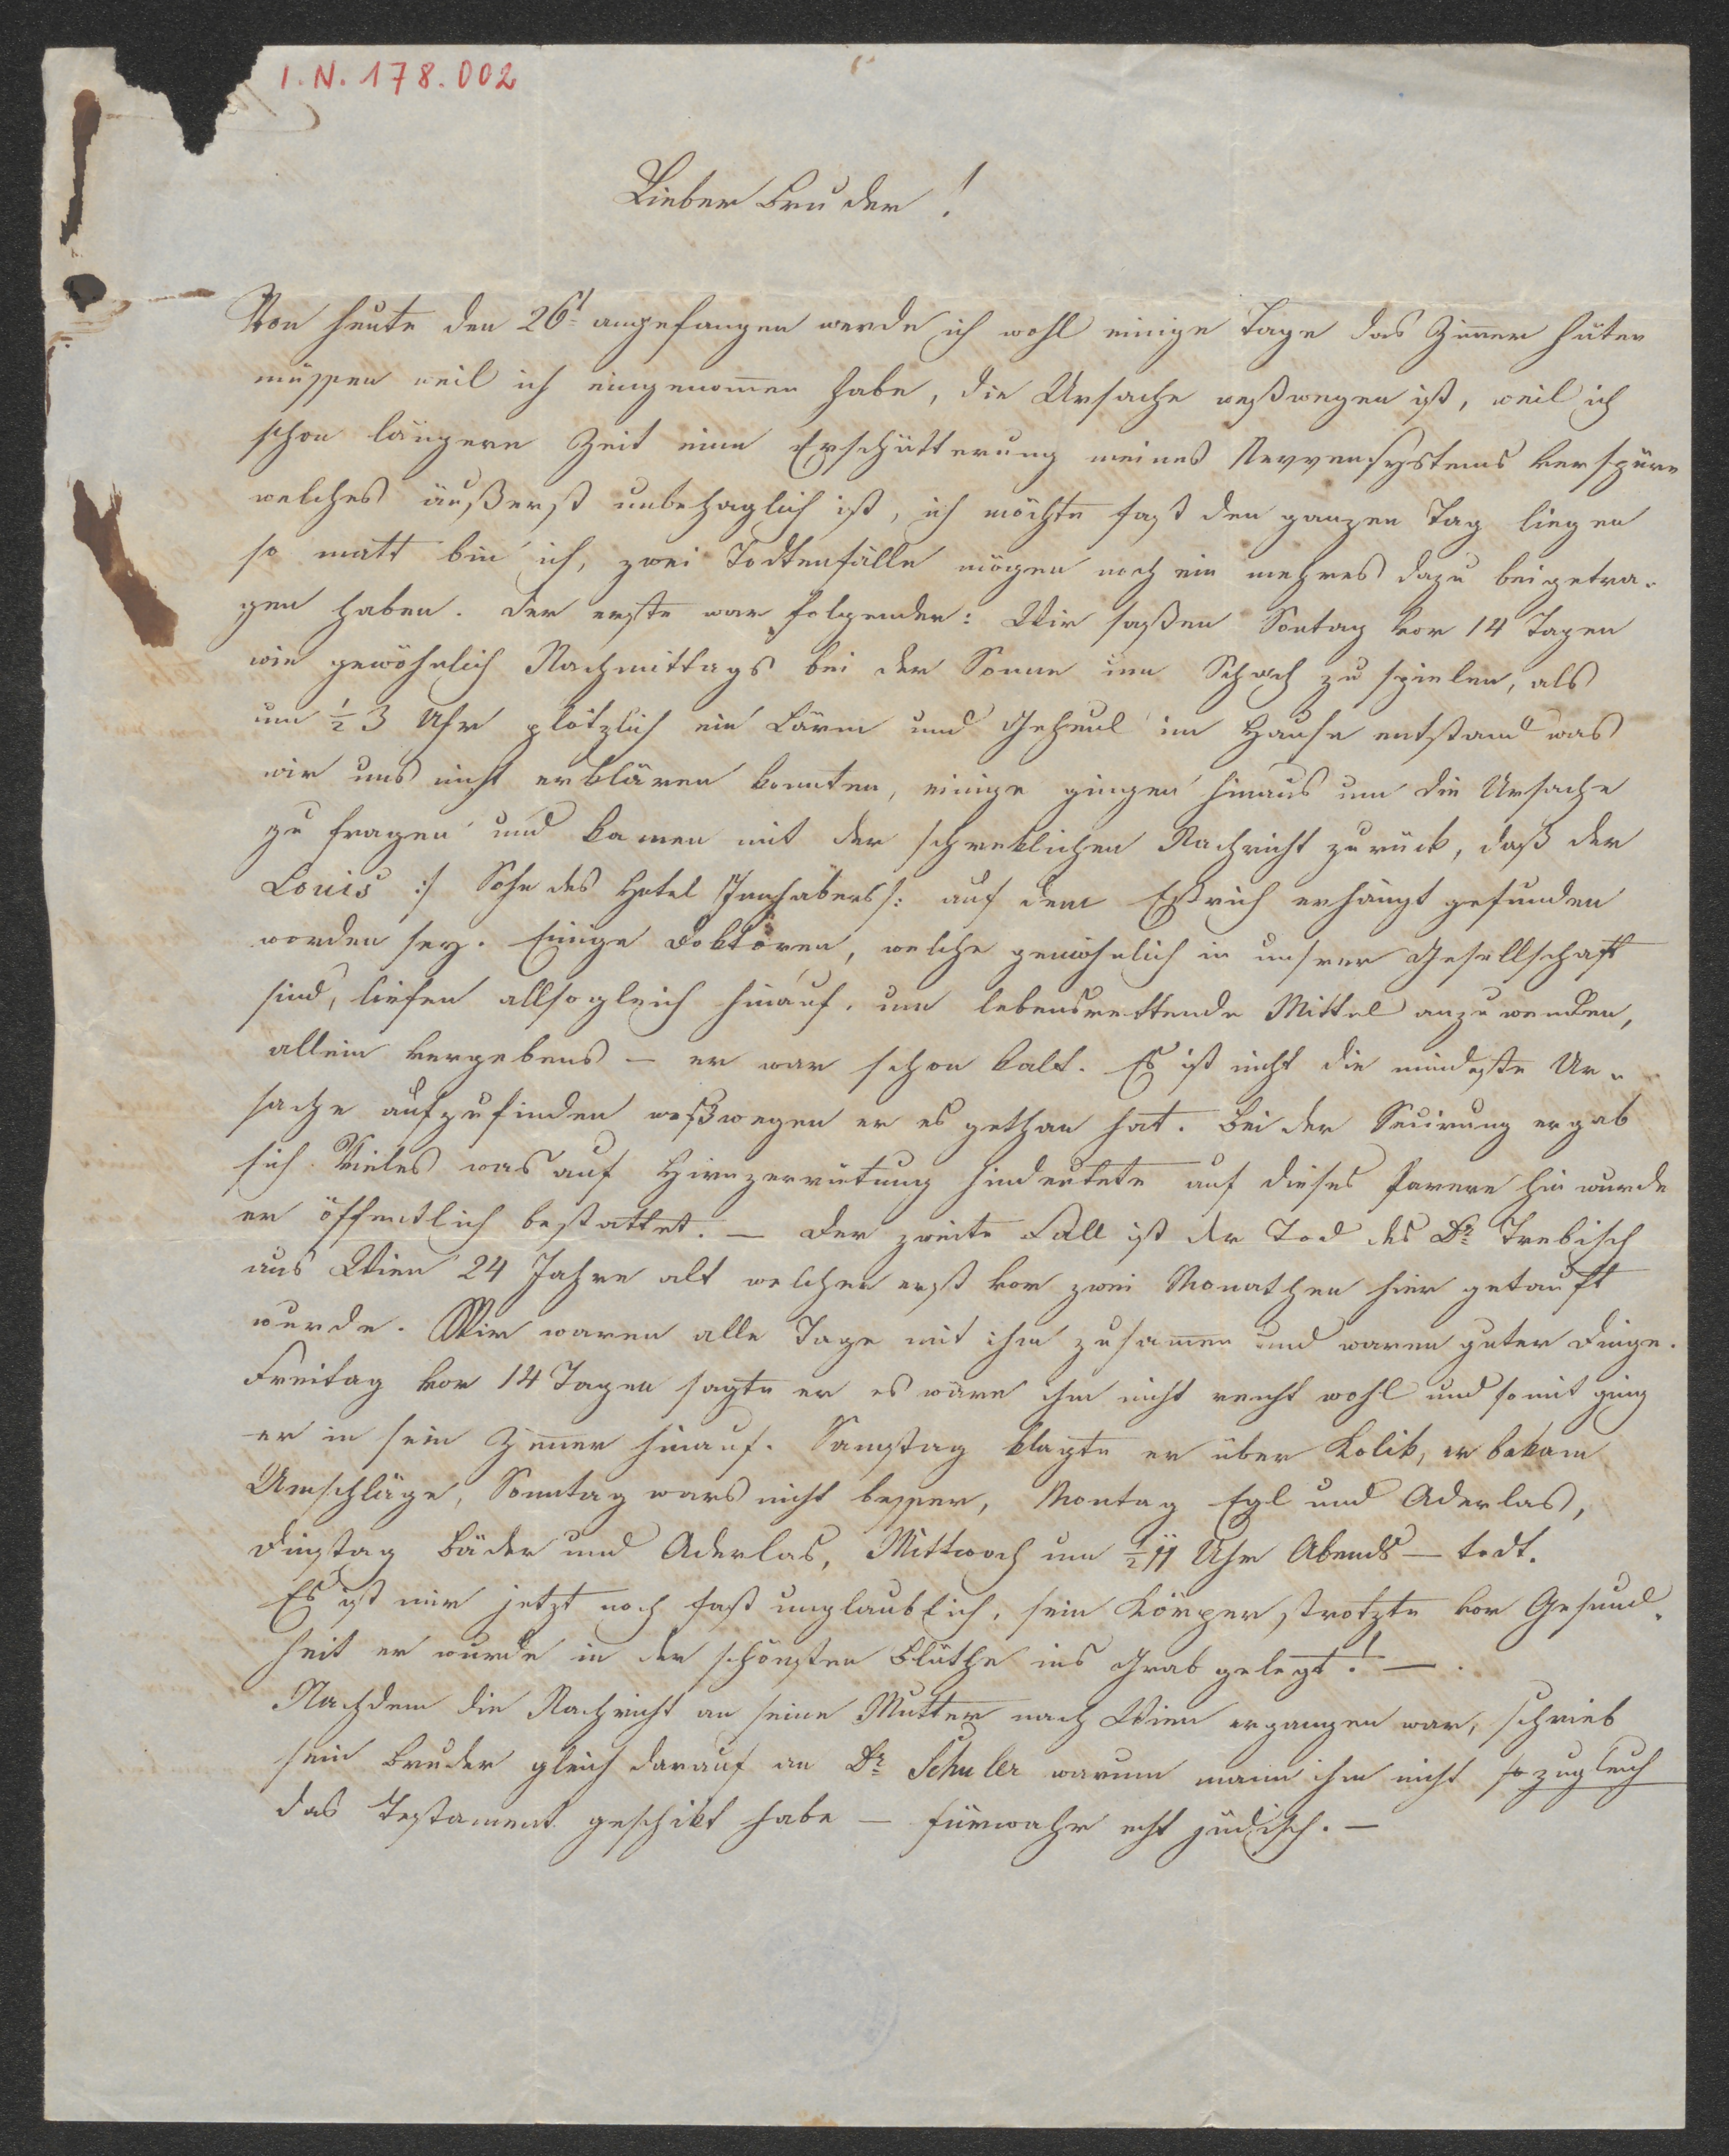 I.N. 178.002
Lieber Bruder!
Von heute den 26t angefangen werde ich wohl einige Tage das Zimer hüten
müssen weil ich eingenomen habe, die Ursache weßwegen ist, weil ich
schon längere Zeit eine Erschütterung meines Nervensystems verspüre
welches äußerst unbehaglich ist, ich möchte fast den ganzen Tag liegen
so matt bin ich, zwei Todtenfälle mögen noch ein mehres dazu beigetra-
gen haben. Der erste war folgender: Wir saßen Sontag vor 14 Tagen
wie gewöhnlich Nachmittags bei der Sonne um Schach zu spielen, als
um ½ 3 Uhr plötzlich ein Lärm und Geheul im Hause entstand was
wir uns nicht erklären konnten, einige gingen hinaus um die Ursache
zu fragen und kamen mit der schreklichen Nachricht zurück, daß der
Louis :/ Sohn des Hotel Innhabers /: auf dem Estrich erhängt gefunden
worden sey. Einige Doktoren, welche gewöhnlich in unsrer Gesellschaft
sind, liefen allsogleich hinauf, um lebensrettende Mittel anzuwenden,
allein vergebens – er war schon kalt. Es ist nicht die mindeste Ur-
sache aufzufinden weßwegen er es gethan hat. Bei der Secirung ergab
sich Vieles was auf Hirnzerrütung hindeutete auf dieses Parere hin wurde
er öffentlich bestattet. – Der zweite Fall ist der Tod des Dr Trebisch
aus Wien 24 Jahre alt welcher erst vor zwei Monathen hier getauft
wurde. Wir waren alle Tage mit ihm zusamen und waren guter Dinge.
Freitag vor 14 Tagen sagte er es wäre ihm nicht recht wohl und somit ging
er in sein Zimer hinauf. Samstag klagte er über Kolik, er bekam
Umschläge, Sonntag wars nicht besser, Montag Egl und Aderlas,
Dinstag Bäder und Aderlas, Mittwoch um ½ 11 Uhr Abends – todt.
Es ist mir jetzt noch fast unglaublich, sein Körper strotzte vor Gesund-
heit er wurde in der schönsten Blüthe ins Grab gelegt! –
Nachdem die Nachricht an seine Mutter nach Wien ergangen war, schrieb
sein Bruder gleich darauf an Dr Schuler warum mann ihm nicht sozugleich
das Testament geschikt habe – fürwahr echt jüdisch. –